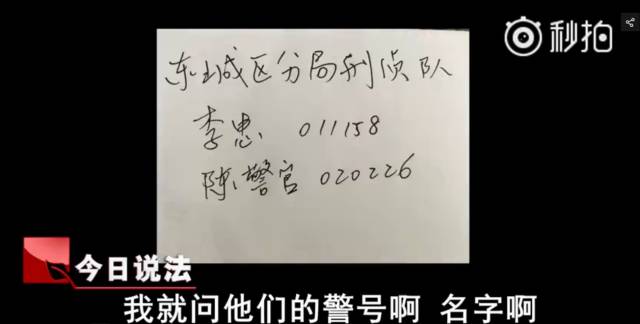 秒拍
东城区分局刑侦队
李忠 011158
陈警官 020226
今日说法
我就问他们的警号啊 名字啊